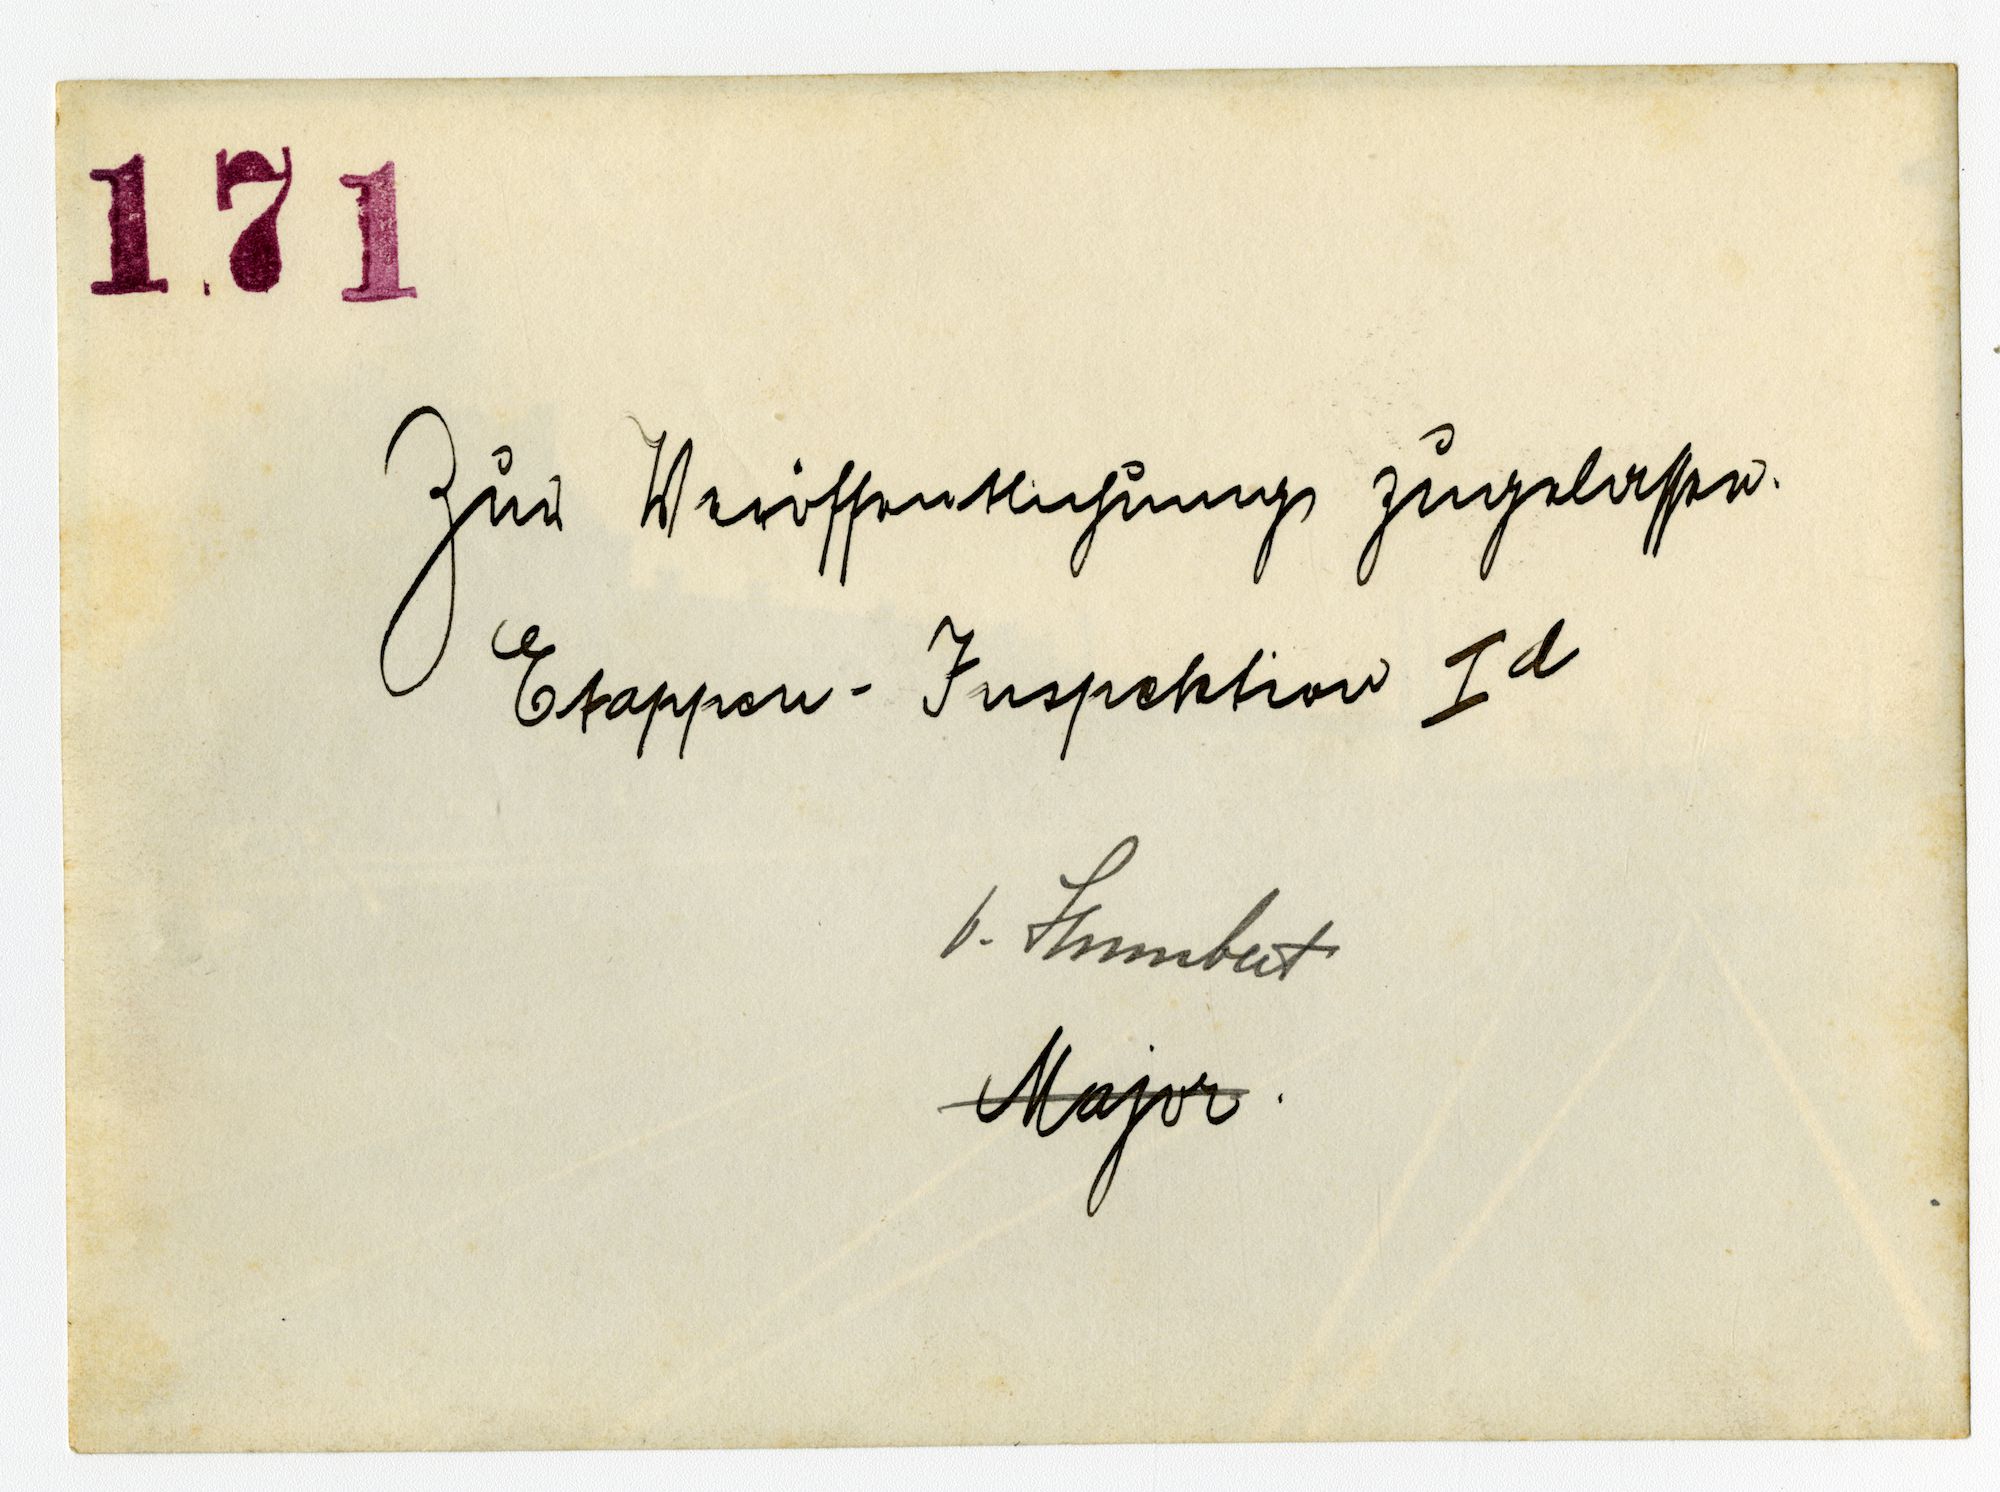 171
Zur Veröffentlichung zugelassen.
Etappen-Inspektion Id
v. Humbert
Major.